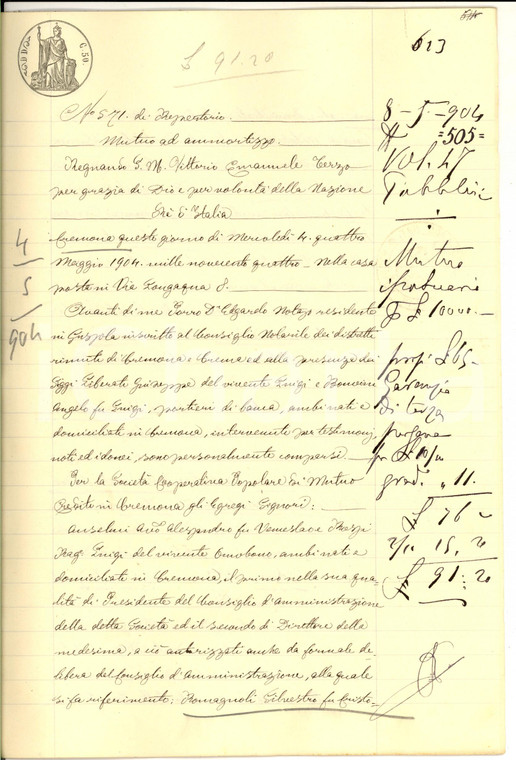 623
£ 91.20
C. 50
N.o 571. di Repertorio.
Mutuo ad ammortizzo.
Regnando S. M. Vittorio Emanuele Terzo
per grazia di Dio e per volontà della Nazione
Re d'Italia
Cremona questo giorno di Mercoledì 4. quattro
Maggio 1904. mille novecento quattro - Nella casa
posta in Via Longaqua 8.
Avanti di me Porro Dr Edgardo Notajo residente
in Gussola inscritto al Consiglio Notarile dei distretti
riuniti di Cremona e Crema ed alla presenza dei
Sigg.i Liberati Guiseppe del vivente Luigi e Bonomini
Angelo fu Luigi, portieri di banca, ambi nati e
domiciliati in Cremona, intervenuti per testimonj
noti ed idonei, sono personalmente comparsi
Per la Società Cooperativa Popolare di Mutuo
Credito in Cremona gli Egregi Signori:
Anselmi Avv. Alessandro fu Venceslao e Crespi
Rag. Luigi del vivente Omobono, ambi nati e
domiciliati in Cremona, il primo nella sua qua-
lità di Presidente del Consiglio d'amministrazione
della detta Società ed il secondo di Direttore della
medesima, a ciò autorizzati anche da formale de-
libera del Consiglio d'amministrazione, alla quale
si fa riferimento; Romagnoli Silvestro fu Cristo-
8 - 5 - 904
N =505=
Vol. 47
Pubblici
Mutuo
ipotecario
£ 10000.-
prop. £ 65-
Garanzia
di terza
persona
grad. " 11.
£ 76 -
2/10 15, 20
£ 91: 20
4
5
904